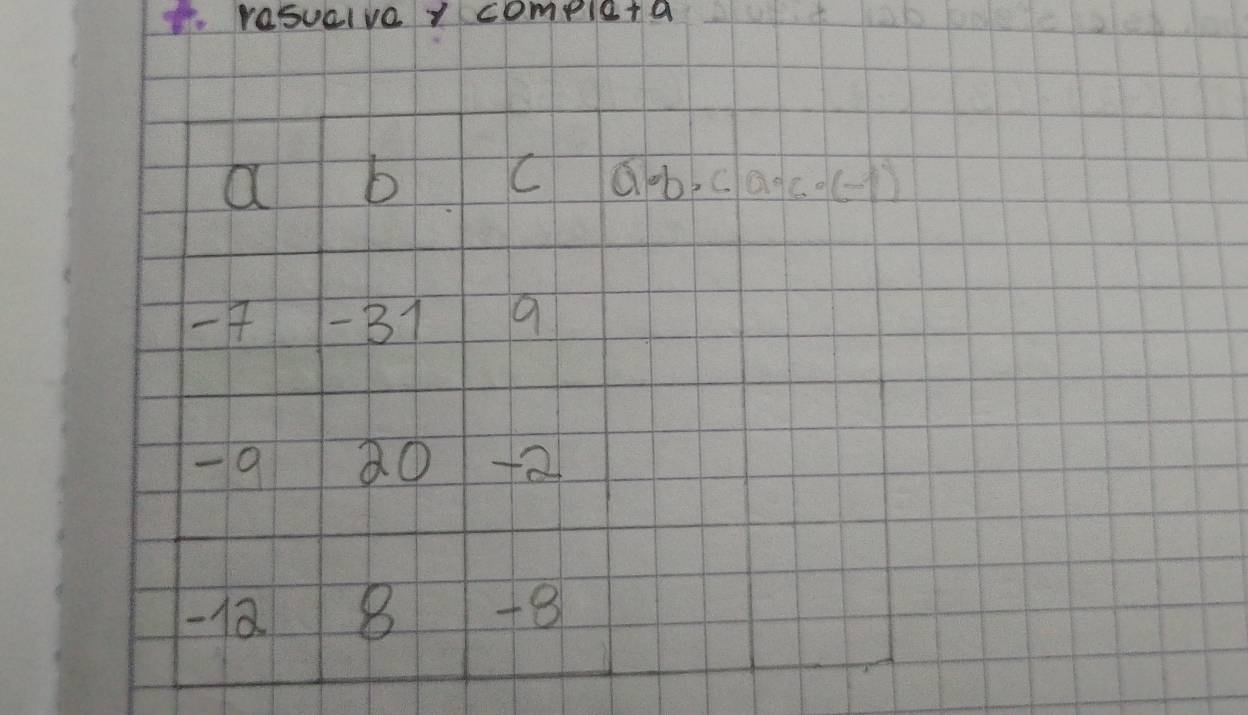 7. resuelve y completa
a b c a·b·c a·c·(-1)
-7 -31 9
-9 20 -2
-12 8 -8